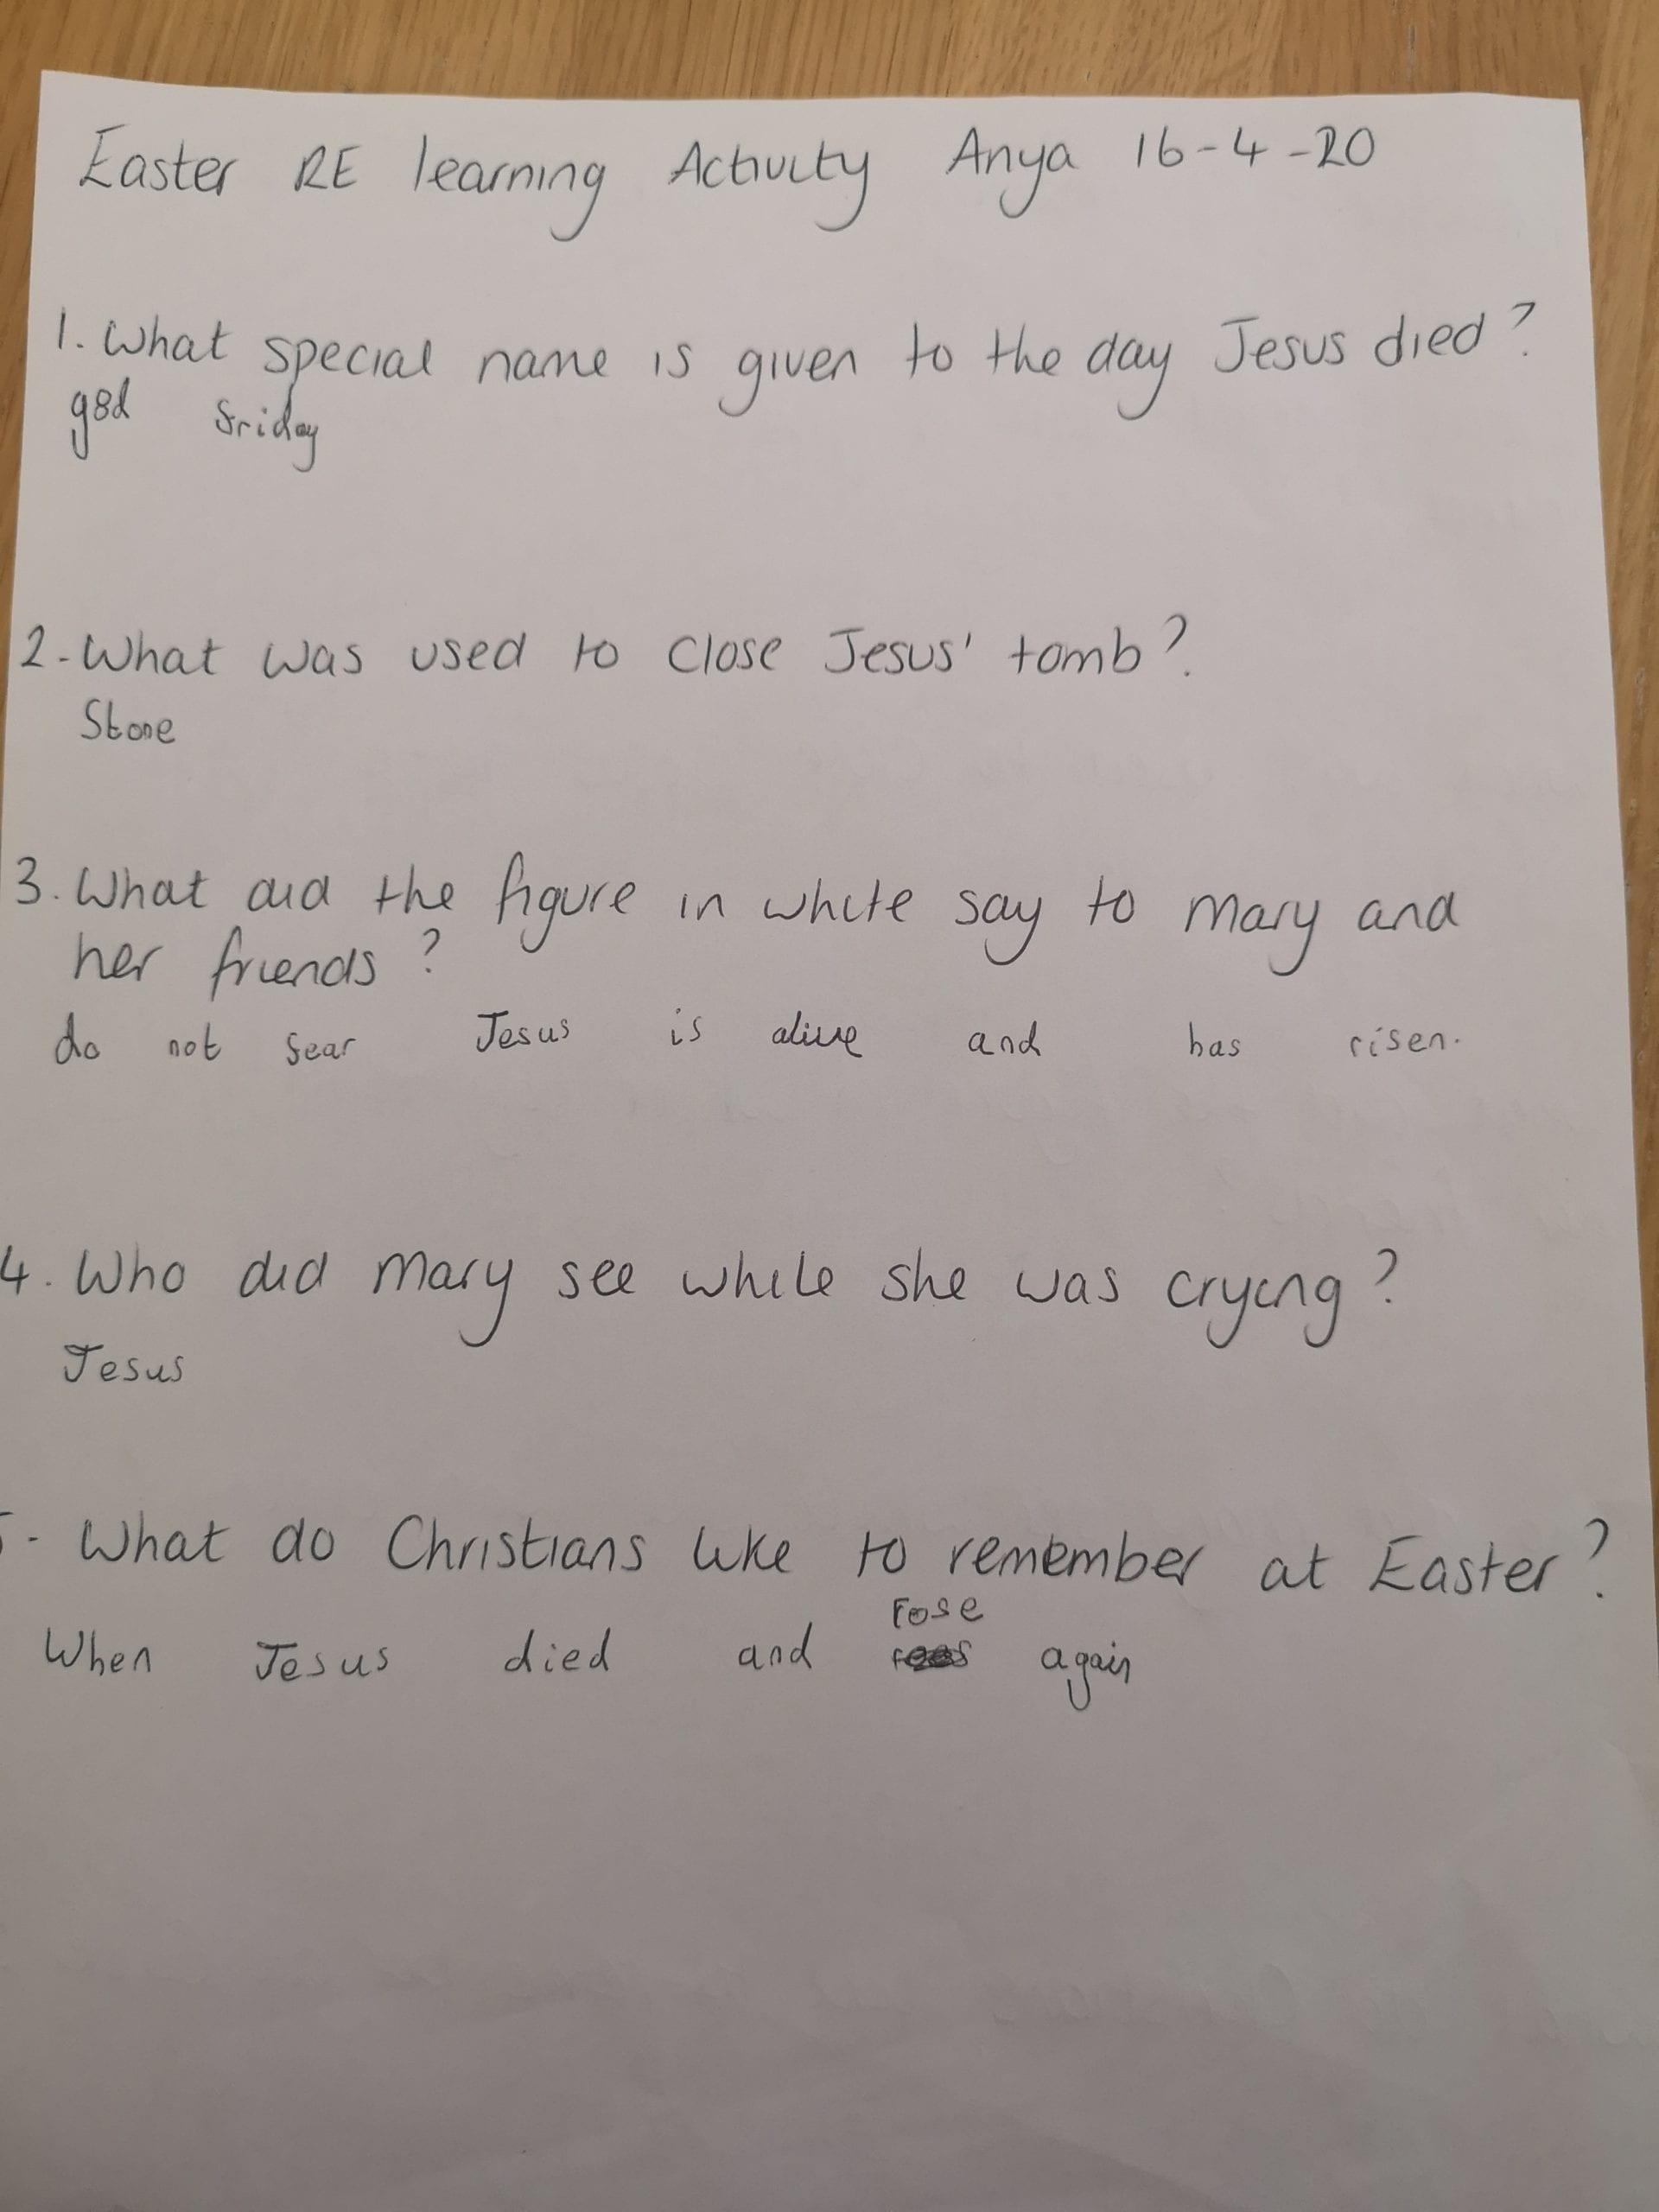 Easter RE learning Activity Anya 16-4-20
1. What special name is given to the day Jesus died?
god friday
2. What was used to close Jesus' tomb?
Stone
3. What did the figure in white say to Mary and
her friends?
do not fear Jesus is alive and has risen.
4. Who did Mary see while she was crying?
Jesus
5. What do Christians like to remember at Easter?
rose
When Jesus died and again